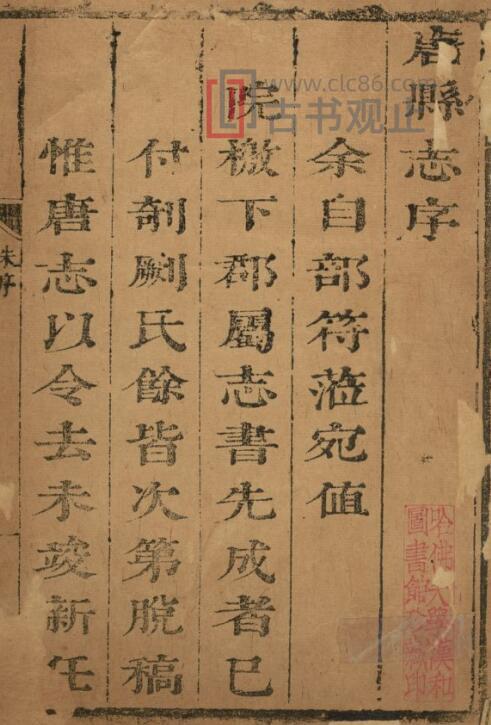 唐縣志序
余自部符蒞宛值
院檄下郡屬志書先成者已
付剞劂氏餘皆次第脫稿
惟唐志以令去未竣新任
朱序
www.clc86.com
古书观止
哈佛大學漢和
圖書館珍藏印